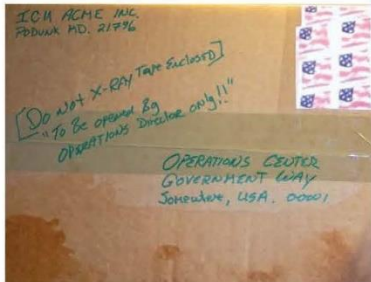 ICU ACME INC.
PODUNK MD. 21796
[DO NOT X-RAY TAPE ENCLOSED]
"TO BE OPENED By
OPERATIONS DIRECTOR ONLY!!"
OPERATIONS CENTER
GOVERNMENT WAY
SOMEWHERE, USA. 00001